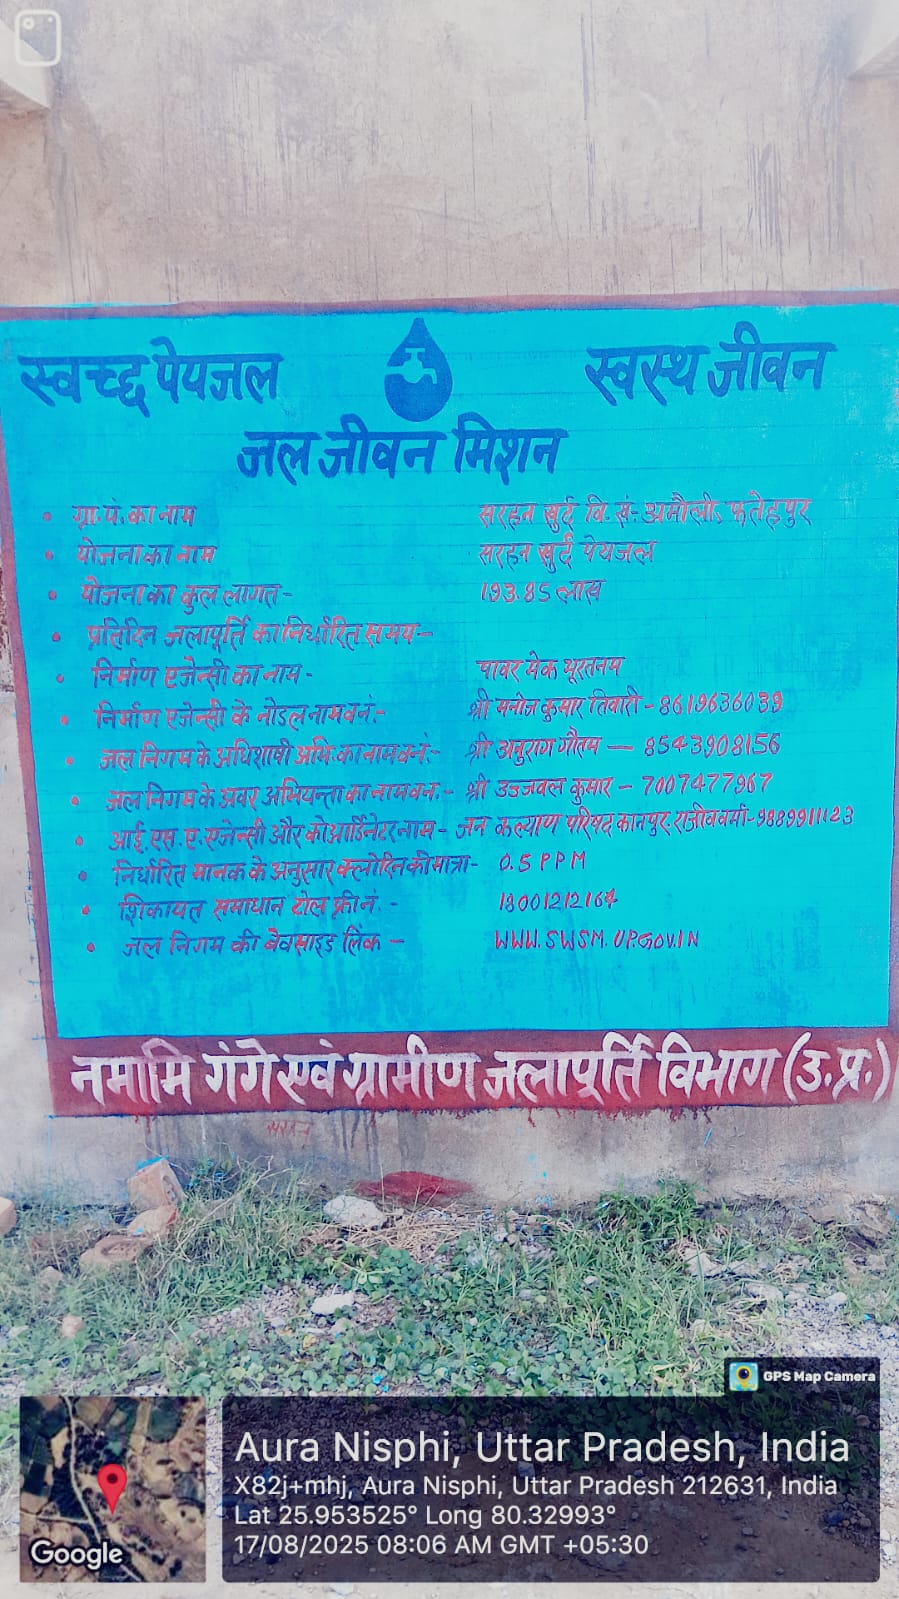 स्वच्छ पेयजल
स्वस्थ जीवन
जल जीवन मिशन
• ग्रा.पं. का नाम सरहन खुर्द वि. खं:- अमौली, फतेहपुर
• योजना का नाम सरहन खुर्द पेयजल
• योजना का कुल लागत- 193.85 लाख
• प्रतिदिन जलापूर्ति का निर्धारित समय-
• निर्माण एजेन्सी का नाम - पावर मेक भूरतनम
• निर्माण एजेन्सी के नोडल नाम व नं:- श्री मनोज कुमार तिवारी - 8619636039
• जल निगम के अधिशाषी अभि. का नाम व नं:- श्री अनुराग गौतम — 8543908156
• जल निगम के अवर अभियन्ता का नाम व न. - श्री उज्जवल कुमार - 7007477967
• आई. एस. ए. एजेन्सी और कोआर्डिनेटर नाम - जन कल्याण परिषद कानपुर राजीव वर्मा - 9889911123
• निर्धारित मानक के अनुसार क्लोरिन की मात्रा- 0.5 PPM
• शिकायत समाधान टोल फ्री नं. - 18001212164
• जल निगम की बेवसाइड लिंक - WWW.SWSM.UP.GOV.IN
नमामि गंगे एवं ग्रामीण जलापूर्ति विभाग (उ.प्र.)
GPS Map Camera
Aura Nisphi, Uttar Pradesh, India
X82j+mhj, Aura Nisphi, Uttar Pradesh 212631, India
Lat 25.953525° Long 80.32993°
17/08/2025 08:06 AM GMT +05:30
Google